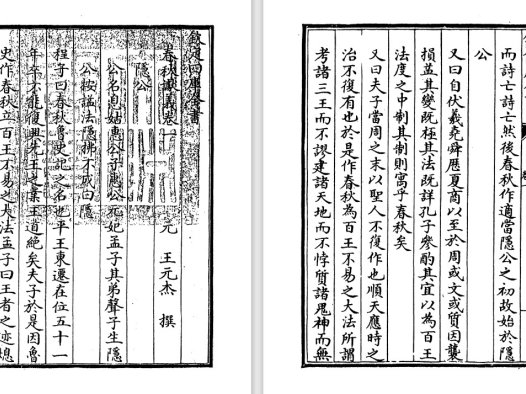 欽定四庫全書
春秋讞義卷一 元 王元杰 撰
隱公
公名息姑惠公子惠公元妃孟子其弟聲子生隱
公按諡法隱拂不成曰隱
程子曰春秋魯史記之名也平王東遷在位五十一
年卒不能復興先王之業王道絶矣夫子於是因魯
史作春秋立百王不易之大法孟子曰王者之迹熄
而詩亡詩亡然後春秋作適當隱公之初故始於隱
公
又曰自伏羲堯舜歷夏商以至於周或文或質因襲
損益其變既極其法既詳孔子參酌其宜以為百王
法度之中制其制則寓乎春秋矣
又曰夫子當周之末以聖人不復作也順天應時之
治不復有也於是作春秋為百王不易之大法所謂
考諸三王而不謬建諸天地而不悖質諸鬼神而無